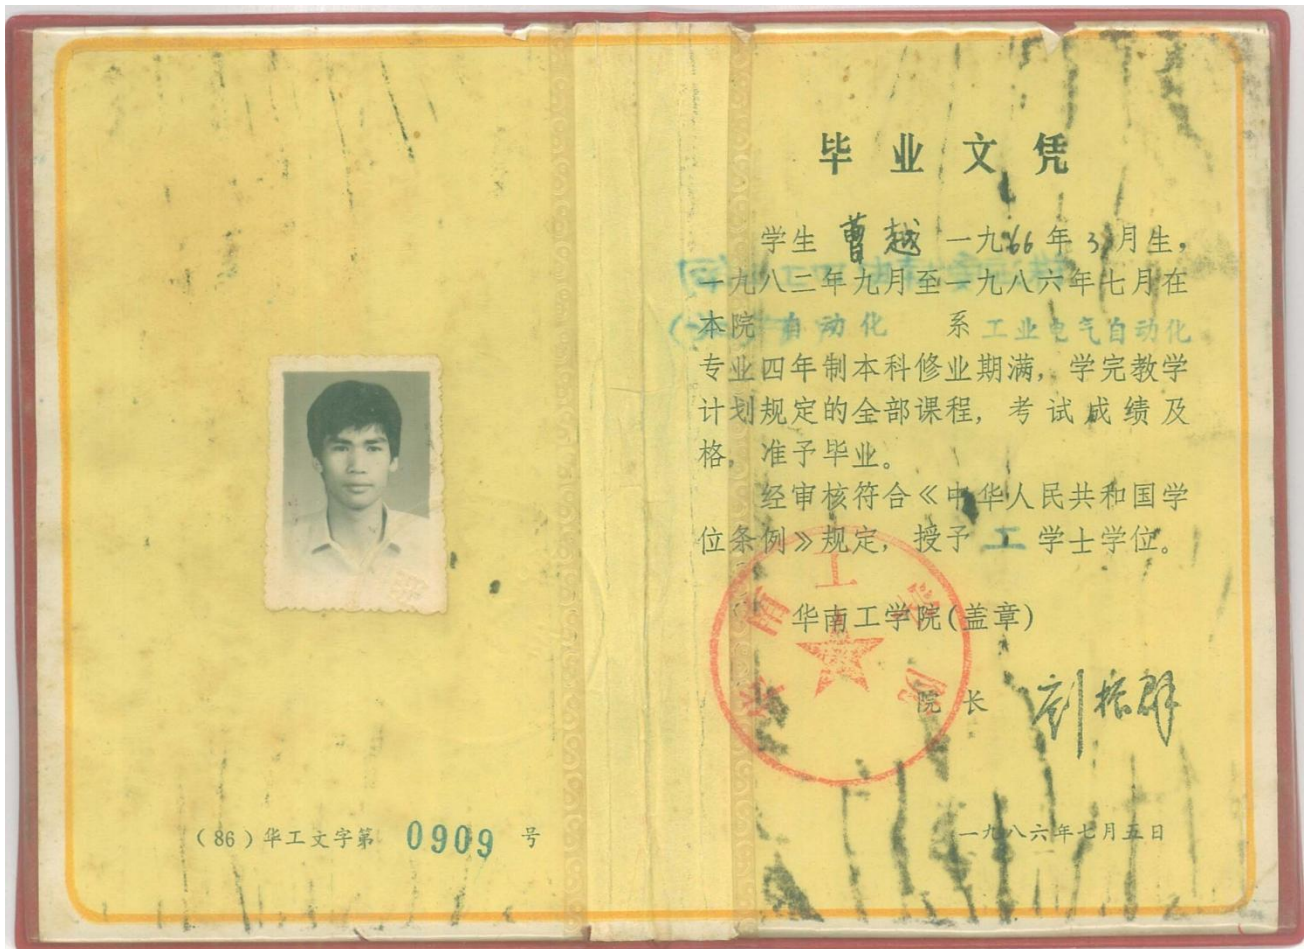 毕业文凭
学生 曹越 一九66年3月生，
一九八二年九月至一九八六年七月在
本院 自动化 系 工业电气自动化
专业四年制本科修业期满，学完教学
计划规定的全部课程，考试成绩及
格，准予毕业。
经审核符合《中华人民共和国学
位条例》规定，授予 工 学士学位。
华南工学院(盖章)
华南工学院
院长 刘振群
一九八六年七月五日
(86)华工文字第 0909 号